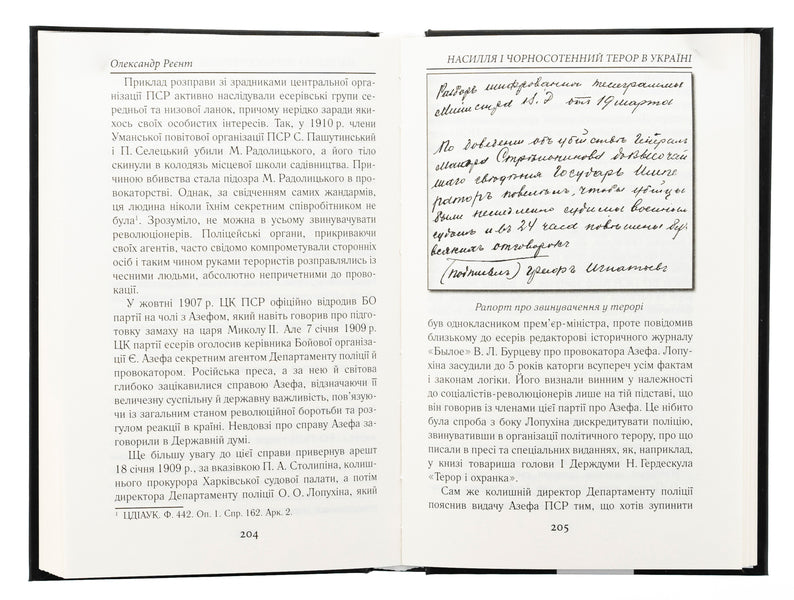 Олександр Реєнт
Приклад розправи зі зрадниками центральної орга-
нізації ПСР активно наслідували есерівські групи се-
редньої та низової ланок, причому нерідко заради яки-
хось своїх особистих інтересів. Так, у 1910 р. члени
Уманської повітової організації ПСР С. Пашутинський
і П. Селецький убили М. Радолицького, а його тіло
скинули в колодязь місцевої школи садівництва. При-
чиною вбивства стала підозра М. Радолицького в про-
вокаторстві. Однак, за свідченням самих жандармів,
ця людина ніколи їхнім секретним співробітником не
була¹. Зрозуміло, не можна в усьому звинувачувати
революціонерів. Поліцейські органи, прикриваючи
своїх агентів, часто свідомо компрометували сторонніх
осіб і таким чином руками терористів розправлялись із
чесними людьми, абсолютно непричетними до прово-
кації.
У жовтні 1907 р. ЦК ПСР офіційно відродив БО
партії на чолі з Азефом, який навіть говорив про підго-
товку замаху на царя Миколу II. Але 7 січня 1909 р.
ЦК партії есерів оголосив керівника Бойової організа-
ції Є. Азефа секретним агентом Департаменту поліції й
провокатором. Російська преса, а за нею й світова
глибоко зацікавилися справою Азефа, відзначаючи її
величезну суспільну й державну важливість, пов'язую-
чи із загальним станом революційної боротьби та роз-
гулом реакції в країні. Невдовзі про справу Азефа за-
говорили в Державній думі.
Ще більшу увагу до цієї справи привернув арешт
18 січня 1909 р., за вказівкою П. А. Столипіна, колиш-
нього прокурора Харківської судової палати, а потім
директора Департаменту поліції О. О. Лопухіна, який
¹ ЦДІАУК. Ф. 442. Оп. 1. Спр. 162. Арк. 2.
204
НАСИЛЛЯ І ЧОРНОСОТЕННИЙ ТЕРОР В УКРАЇНІ
Разборъ шифрованной телеграммы
Министра В. Д отъ 19 марта
По доведении объ убійствѣ Генералъ
Маіора Стрѣльникова до высочай
шаго свѣденія Государь Импе
раторъ повелѣлъ, чтобы убійцы
были немедленно судимы военнымъ
судомъ и въ 24 часа повѣшены безъ
всякихъ отговорокъ
(подписалъ) Графъ Игнатьевъ
Рапорт про звинувачення у терорі
був однокласником прем'єр-міністра, проте повідомив
близькому до есерів редакторові історичного журналу
«Былое» В. Л. Бурцеву про провокатора Азефа. Лопу-
хіна засудили до 5 років каторги всупереч усім фактам
і законам логіки. Його визнали винним у належності
до соціалістів-революціонерів лише на тій підставі, що
він говорив із членами цієї партії про Азефа. Це нібито
була спроба з боку Лопухіна дискредитувати поліцію,
звинувативши в організації політичного терору, про що
писали в пресі та спеціальних виданнях, як, наприклад,
у книзі товариша голови І Держдуми Н. Гердескула
«Терор і охранка».
Сам же колишній директор Департаменту поліції
пояснив видачу Азефа ПСР тим, що хотів зупинити
205